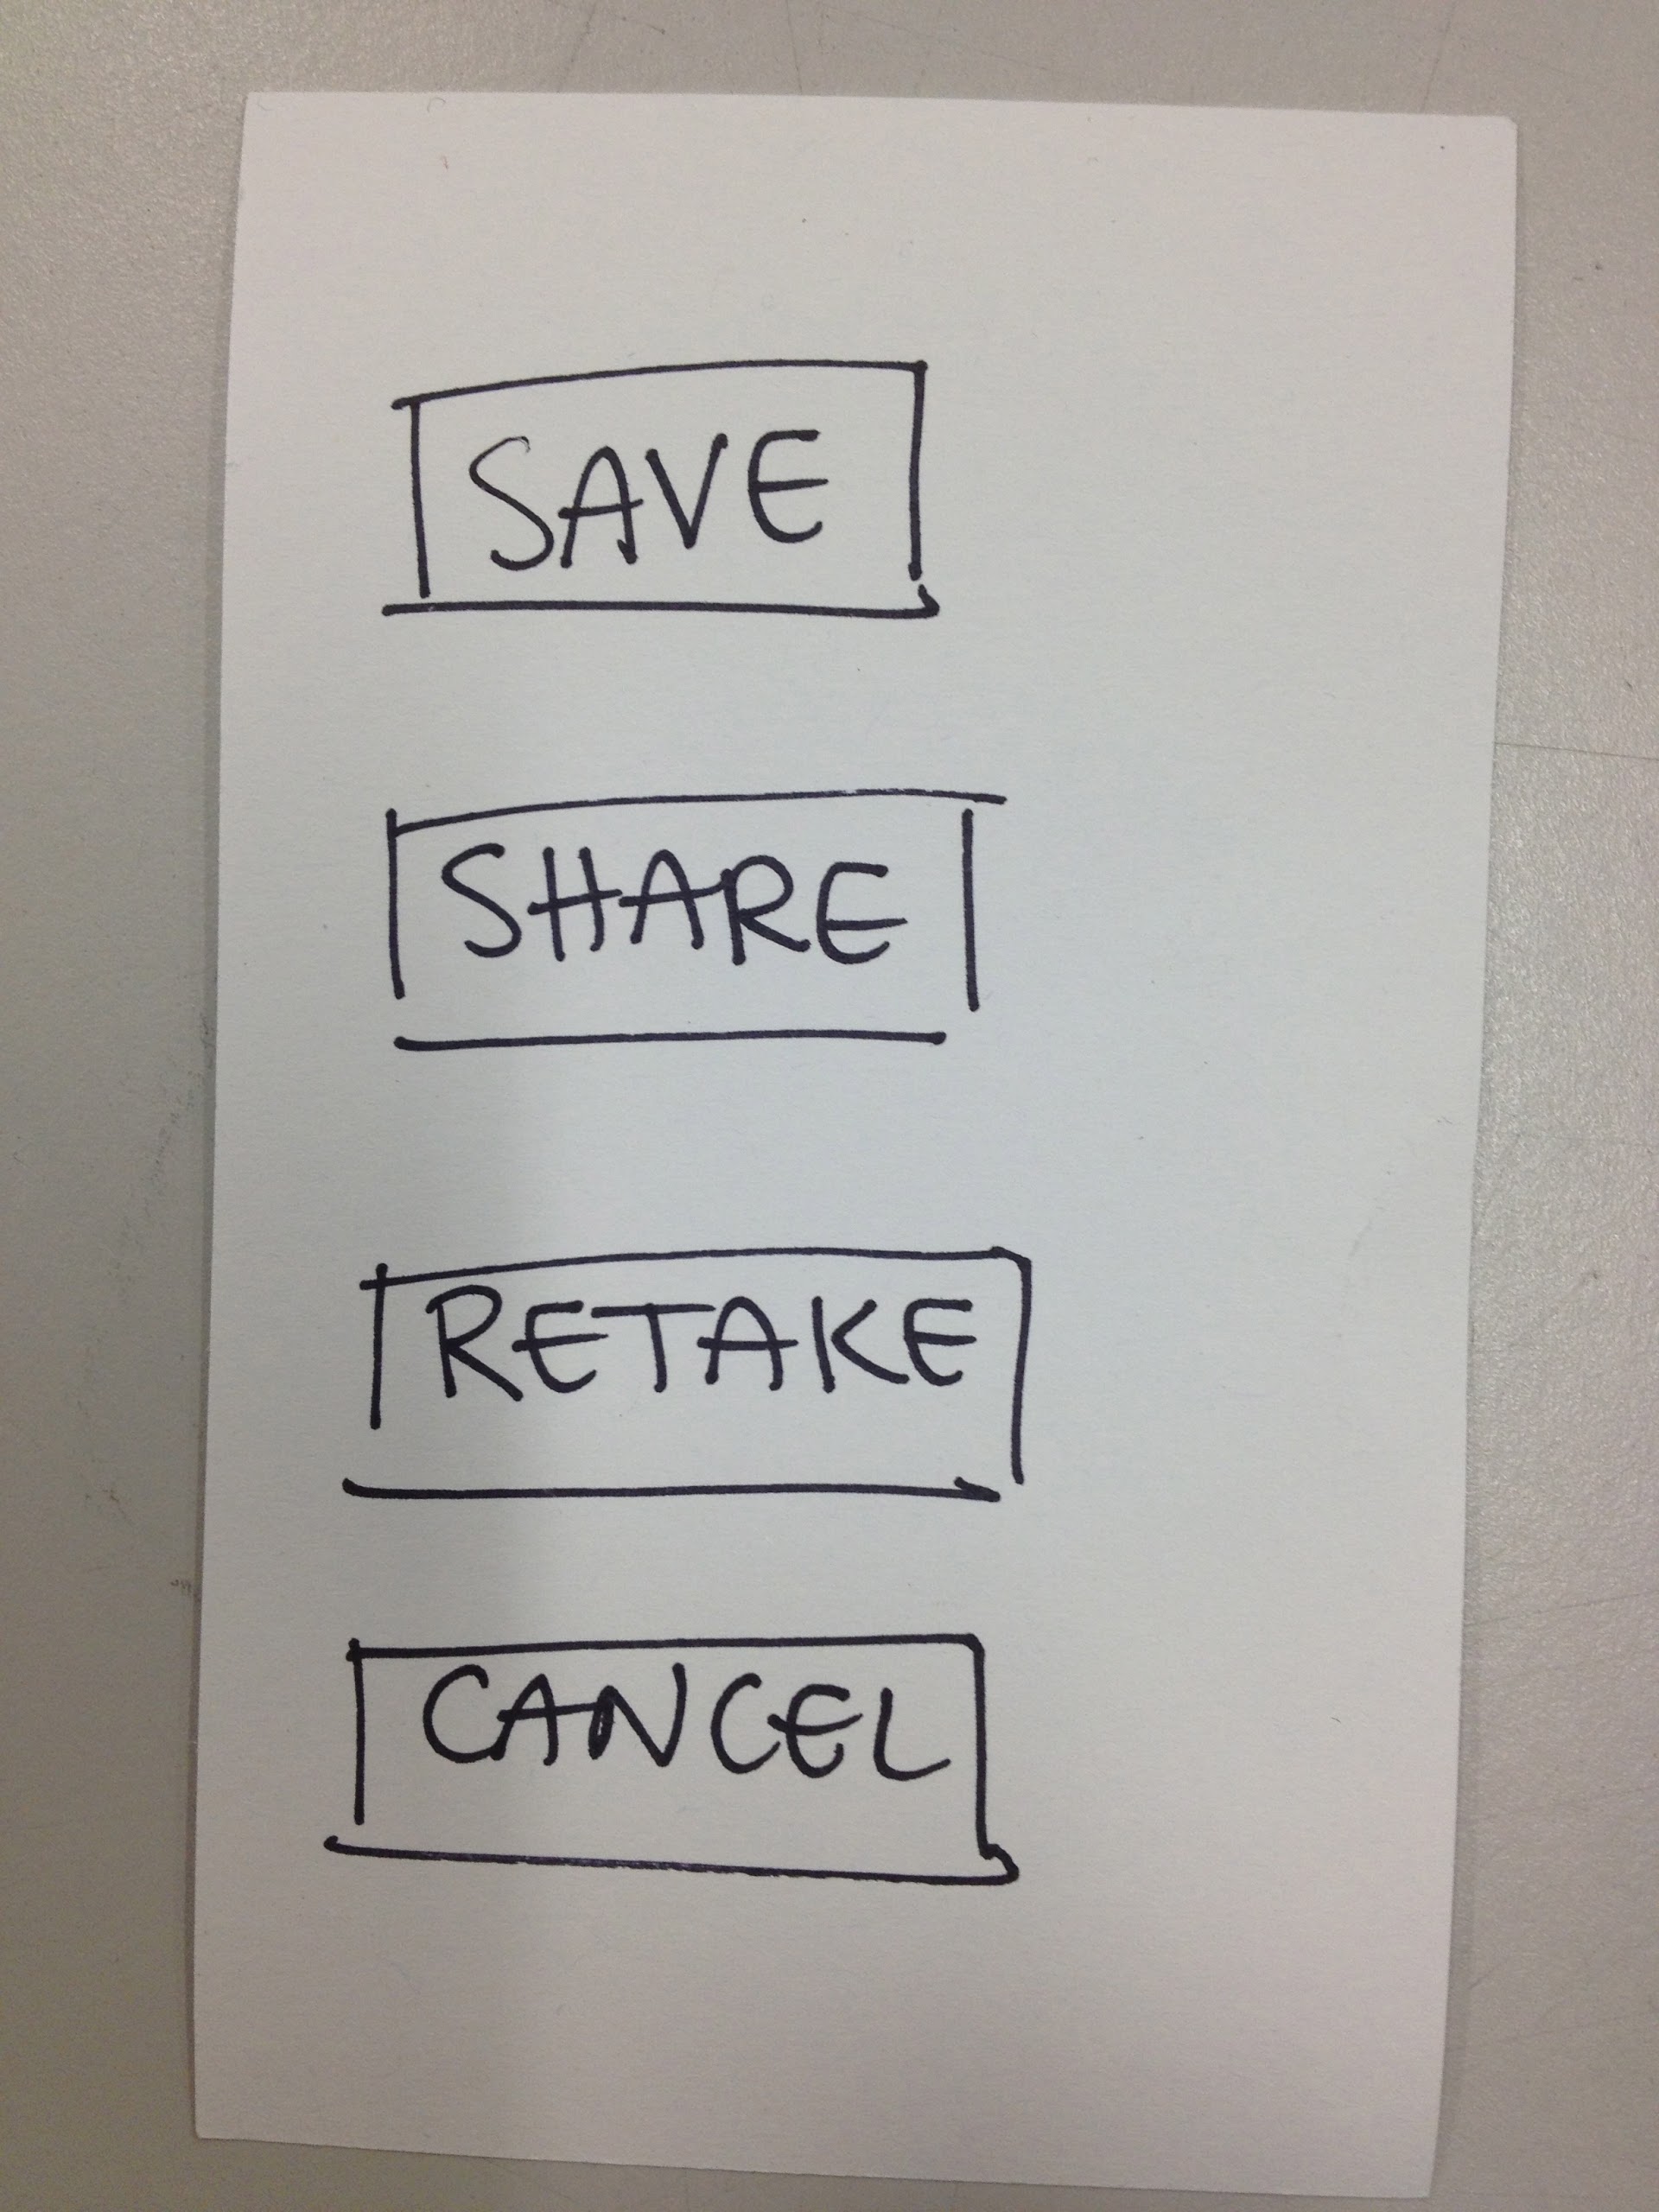 SAVE
SHARE
RETAKE
CANCEL